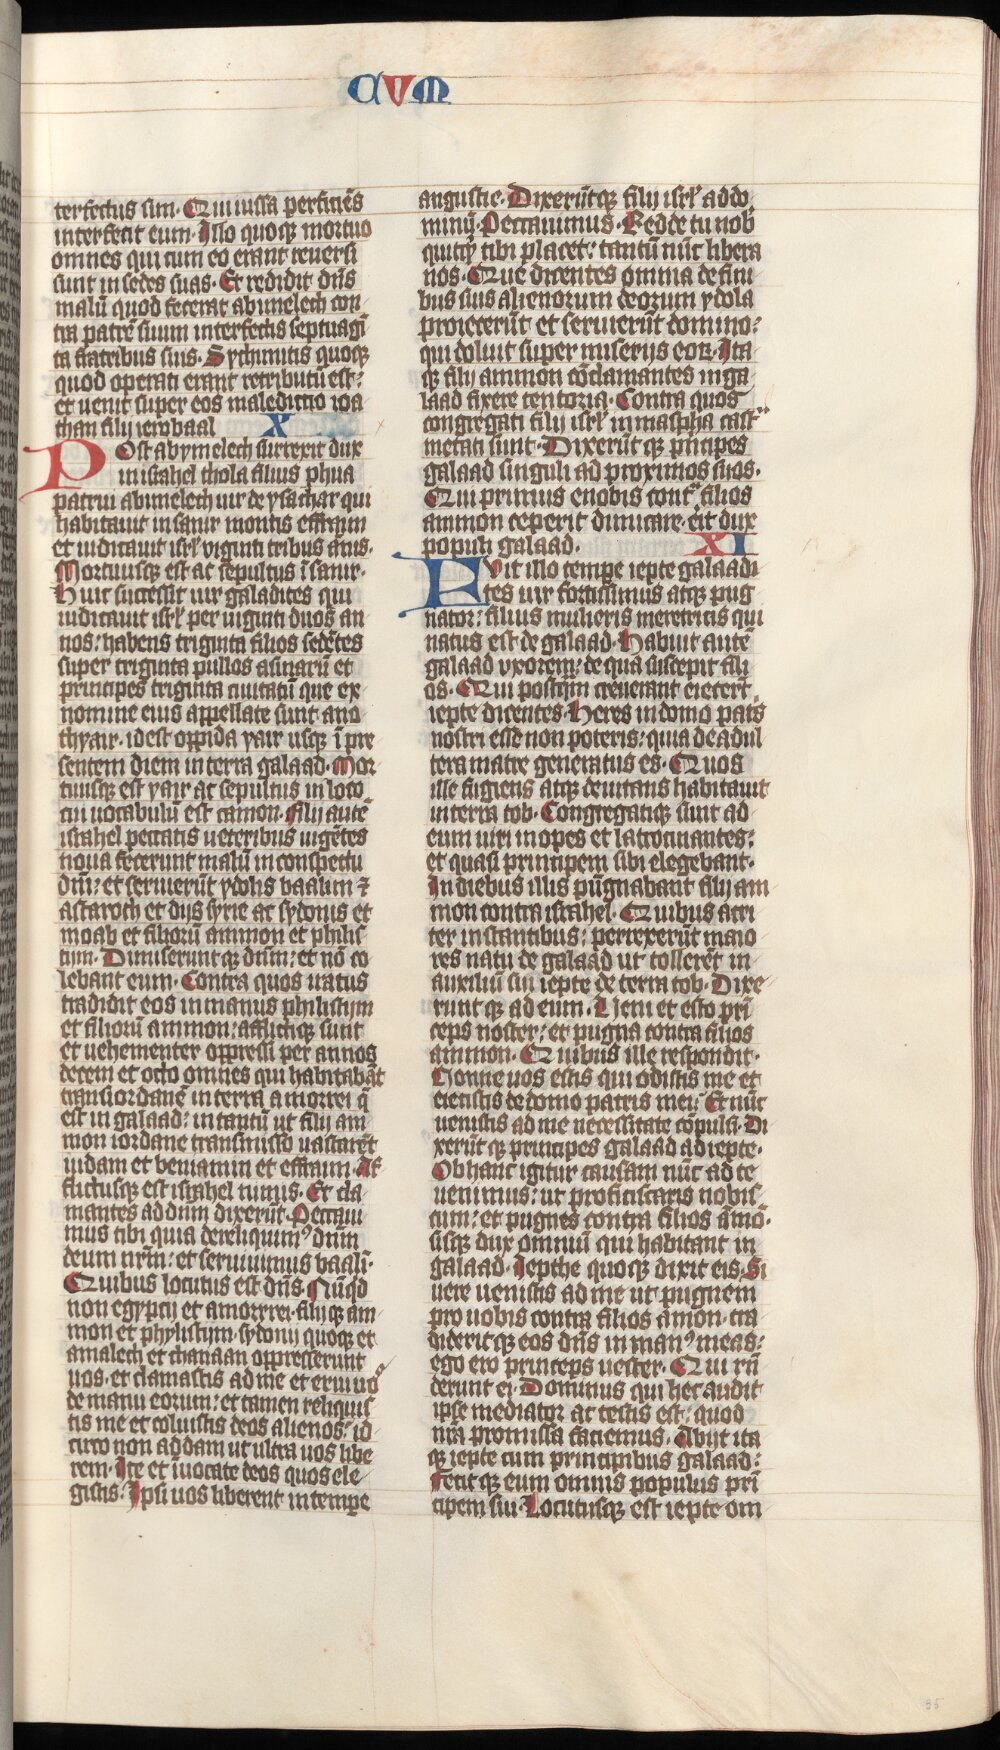 CUM
terfectus sim. Qui iussa perficiẽs
interfecit eum. Illo quoqꝫ mortuo
omnes qui cum eo erant reuersi
sunt in sedes suas. Et reddidit dñs
malũ quod fecerat abimelech con
tra patrẽ suum interfectis septuagĩ
ta fratribus suis. Sychimitis quoqꝫ
quod operati erant retributũ est:
et uenit super eos maledictio ioa
than filij ierobaal X
Post abymelech surrexit dux
in israhel thola filius phua
patrui abimelech uir de ysachar qui
habitauit in sanir montis effraim
et iudicauit isrł viginti tribus anis.
Mortuusqꝫ est ac sepultus ĩ sanir.
Huic successit iair galadites qui
iudicauit isrł per uiginti duos an
nos: habens triginta filios sedẽtes
super triginta pullos asinarũ et
principes triginta ciuitatũ que ex
nomine eius appellate sunt auo
thyair. idest oppida yair usqꝫ ĩ pre
sentem diem in terra galaad. Mor
tuusqꝫ est yair ac sepultus in loco
cui uocabulũ est camon. Filij autẽ
israhel peccatis ueteribus iũgẽtes
noua fecerunt malũ in conspectu
dñi: et seruierũt ydolis baalim ⁊
astaroth et dijs syrie ac sydonis et
moab et filiorũ ammon et philis
tiim. Dimiserunt qꝫ dñm: et nõ co
lebant eum. Contra quos iratus
tradidit eos in manus philistijm
et filiorũ ammon: afflictiqꝫ sunt
et uehementer oppressi per annos
decem et octo omnes qui habitabãt
transiordanẽ in terra amorrei q̃
est in galaad: in tantũ ut filij am
mon iordane transmisso uastarẽt
iudam et beniamin et effraim. Af
flictusqꝫ est israhel nimis. Et cla
mantes ad dñm dixerũt. Peccaui
mus tibi quia dereliquimꝰ dñm
deum nr̃m: et seruiuimus baalĩ.
Quibus locutus est dñs. Nũqd
non egyptij et amorrei. filij qꝫ am
mon et phylistijm. sydonij quoqꝫ et
amalech et chanaan oppresserunt
uos. et clamastis ad me et erui uoˢ
de manu eorum: et tamen reliquis
tis me et coluistis deos alienos: id
circo non addam ut ultra uos libe
rem. Ite et ĩuocate deos quos ele
gistis: Ipsi uos liberent in tempe
angustie. Dixerũtqꝫ filij isrł ad do
minũ. Peccauimus. Redde tu nob
quitqͥd tibi placet: tantũ nũc libera
nos. Que dicentes omnia de fini
bus suis alienorum deorum ydola
proiecerũt et seruierũt domino:
qui doluit super miserijs eoꝝ. Ita
qꝫ filij ammon cõclamantes in ga
laad fixere tentoria. Contra quos
congregati filij isrł in maspha castͬ
metati sunt. Dixerũt qꝫ pͥncipes
galaad singuli ad proximos suos.
Qui primus e nobis contͣ filios
ammon ceperit dimicare. eit dux
populi galaad. XI
FVit illo tempe iepte galaadi
tes uir fortissimus atqꝫ pug
nator: filius mulieris meretricis qui
natus est de galaad. Habuit autẽ
galaad vxorem: de qua suscepit fili
os. Qui postq̃m creuerant eiecert
iepte dicentes. Heres in domo patˢ
nostri esse non poteris: quia de adul
tera matre generatus es. Quos
ille fugiens atqꝫ deuitans habitauit
in terra tob. Congregatiqꝫ sunt ad
eum uiri inopes et latrocinantes:
et quasi principem sibi elegebant.
In diebus illis pũgnabant filij am
mon contra israhel. Quibus acri
ter instantibus: perrexerũt maio
res natu de galaad ut tollerẽt in
auxiliũ sui iepte de terra tob. Dixe
runt qꝫ ad eum. Veni et esto prĩ
ceps noster: et pugna contra filios
ammon. Quibus ille respondit.
Nonne uos estis qui odistis me et
eiecistis de domo patris mei: Et nũc
uenistis ad me necessitate cõpulsi. Di
xerũt qꝫ principes galaad ad iepte.
Ob hanc igitur causam nũc ad te
uenimus: ut proficiscaris nobis
cum: et pugnes contra filios amõ.
sisqꝫ dux omniũ qui habitant in
galaad. Iepthe quoqꝫ dixit eis. Si
uere uenistis ad me ut pugnem
pro uobis contra filios amon. tra
diderit qꝫ eos dñs in manꝰ meas:
ego ero princeps uester. Qui rñ
derunt ei. Dominus qui hec audit
ipse mediator ac testis est: quod
nr̃a promissa faciemus. Abijt ita
qꝫ iepte cum principibus galaad:
fecit qꝫ eum omnis populus prĩ
cipem sui. Locutusqꝫ est iepte om